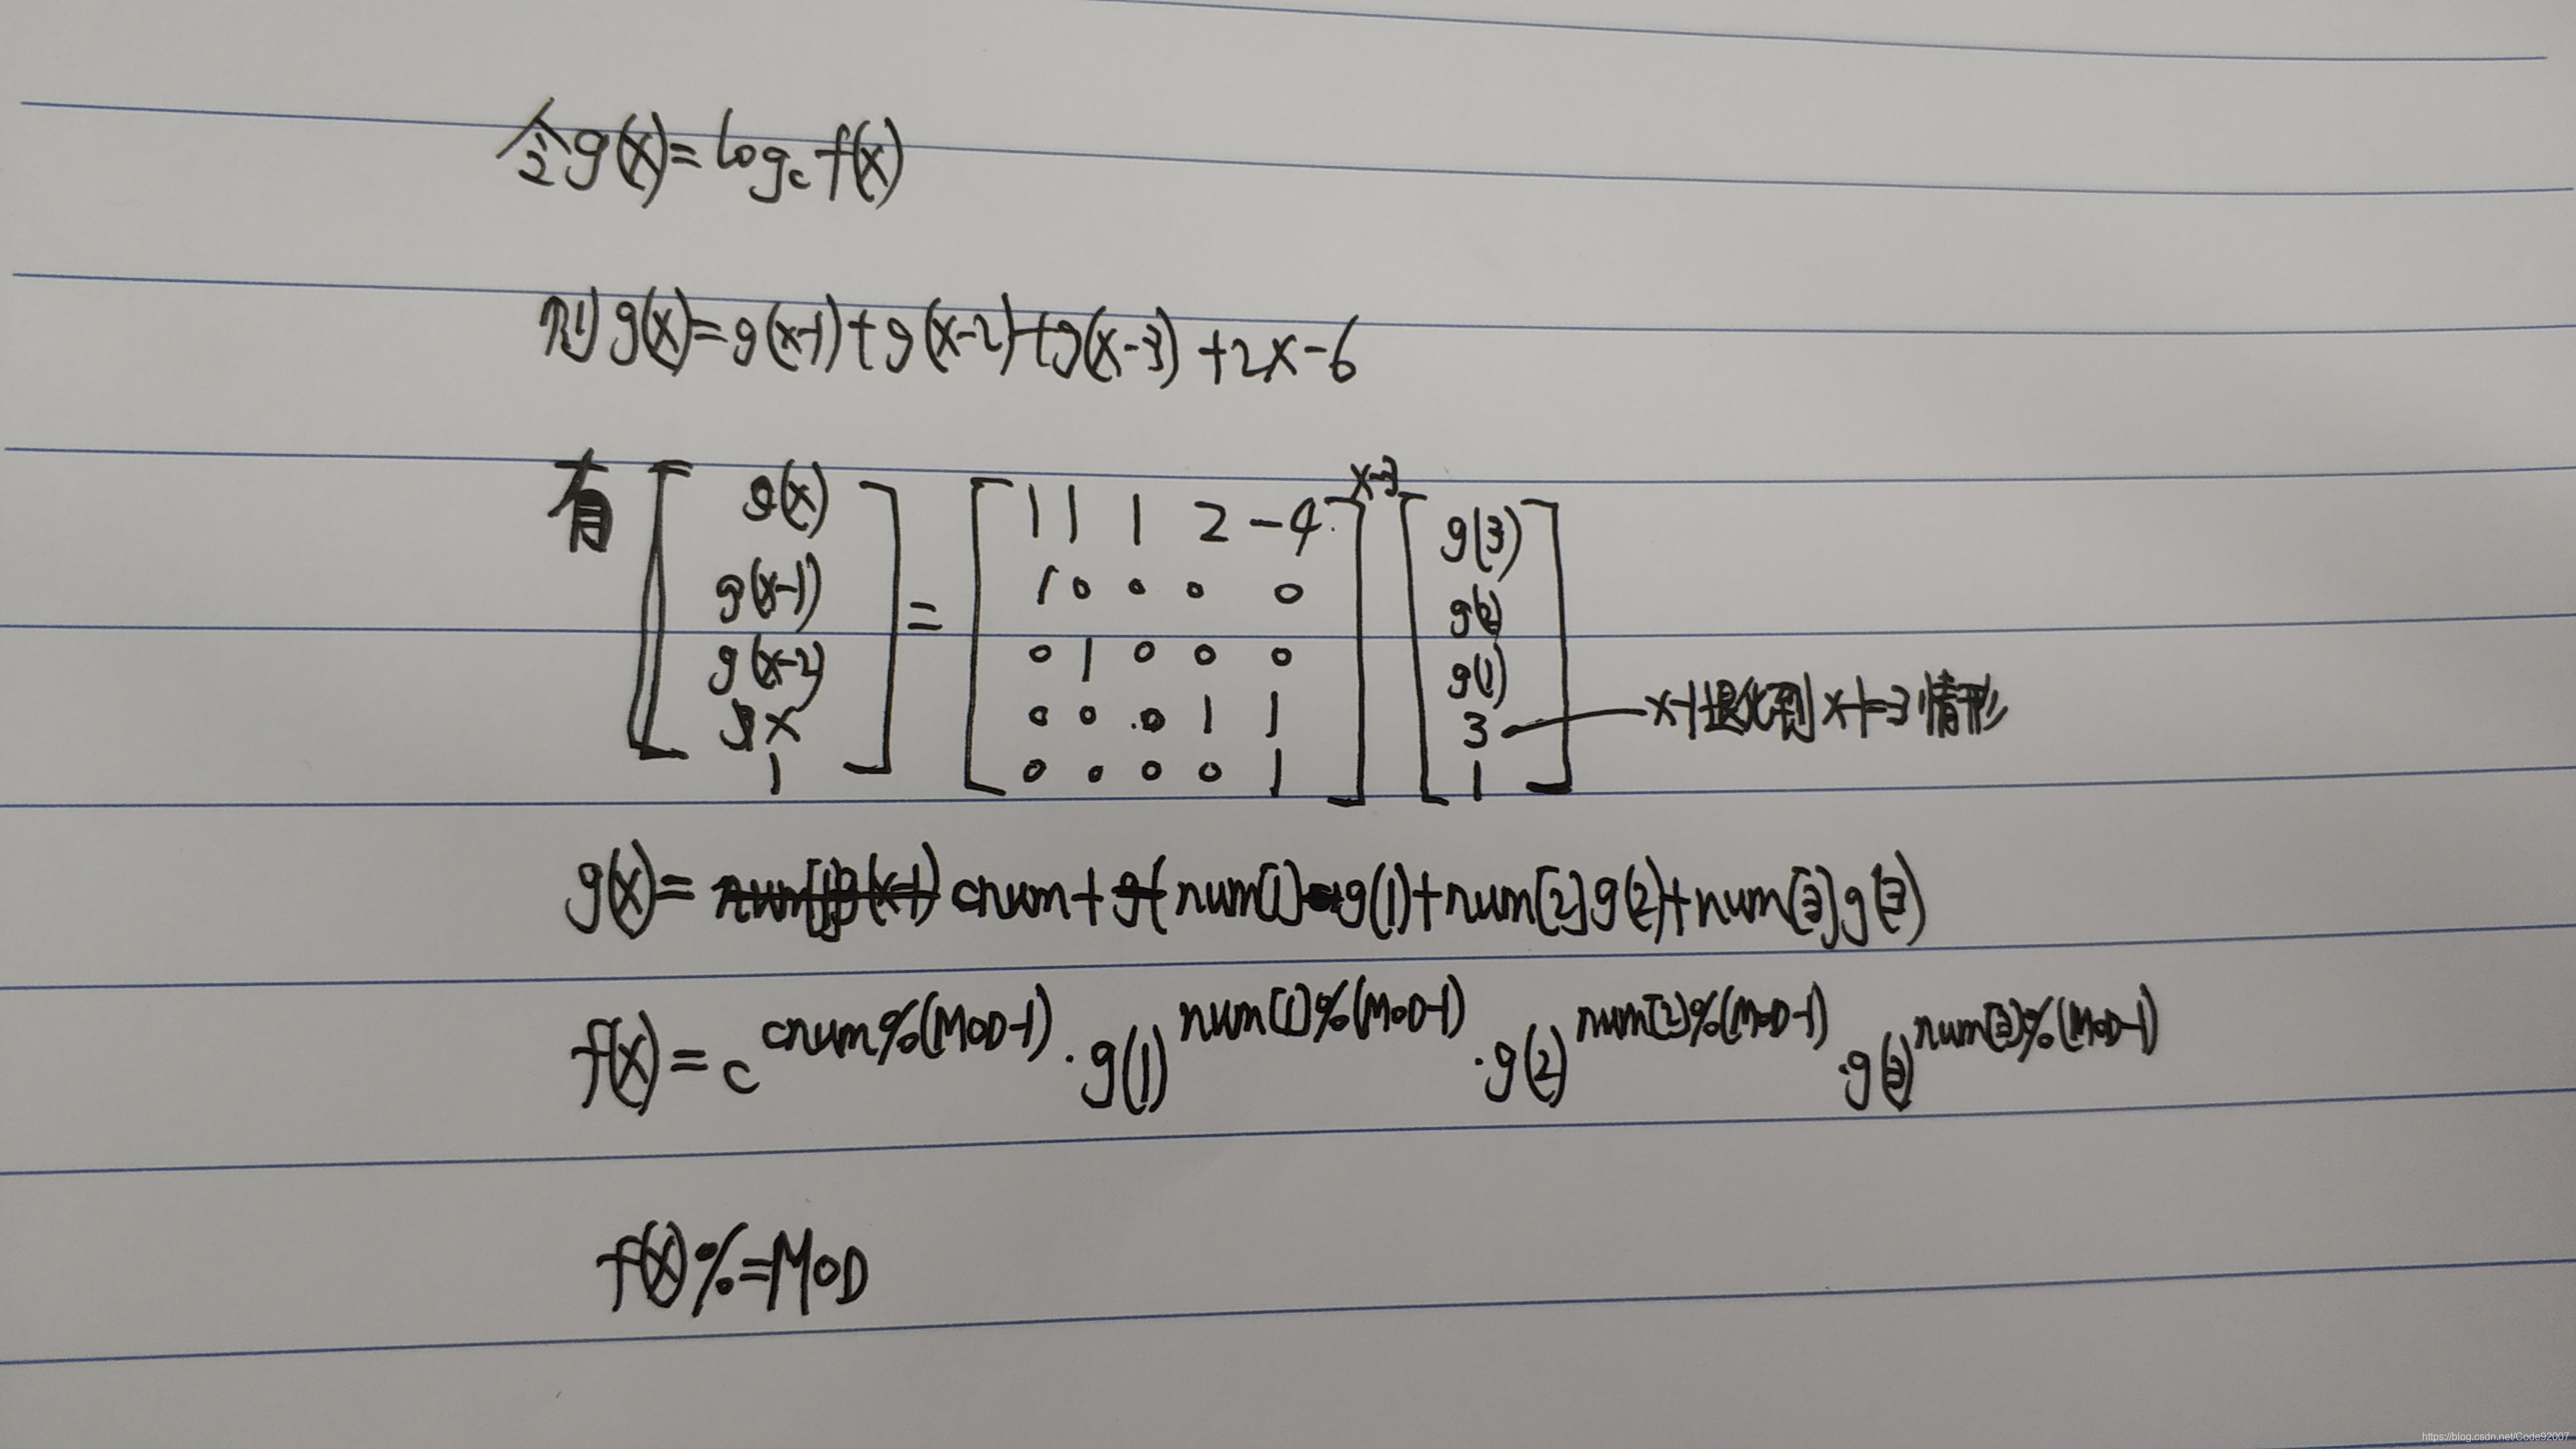 令g(x)=log_c f(x)
则g(x)=g(x-1)+g(x-2)+g(x-3)+2x-6
有 [g(x) g(x-1) g(x-2) x 1] = [1 1 1 2 -4
1 0 0 0 0
0 1 0 0 0
0 0 0 1 1
0 0 0 0 1]^(x-3) [g(3) g(2) g(1) 3 1]
x-1退化到x-1=3情形
g(x)= cnum+num[1]g(1)+num[2]g(2)+num[3]g(3)
f(x)=c^(cnum%(MOD-1))·g(1)^(num[1]%(MOD-1))·g(2)^(num[2]%(MOD-1))·g(3)^(num[3]%(MOD-1))
f(x)%=MOD
https://blog.csdn.net/Code92007